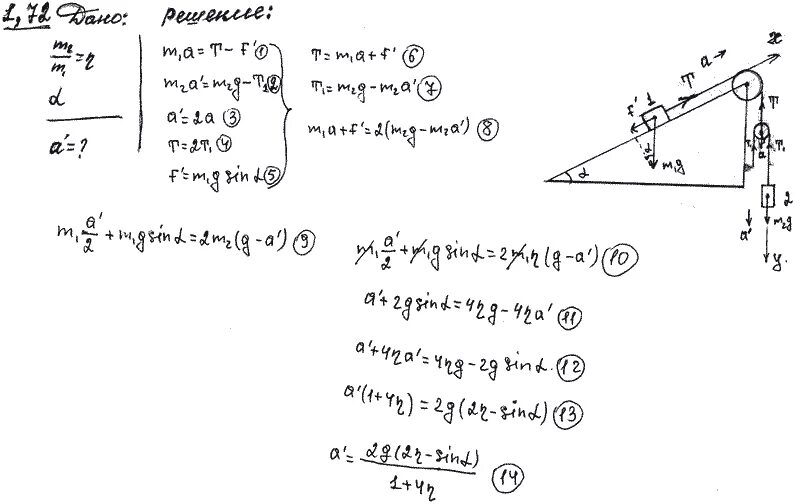 1,72 Дано: Решение:
m₂/m₁ = η
α
a' = ?
m₁a = T − f' (1)
m₂a' = m₂g − T₁ (2)
a' = 2a (3)
T = 2T₁ (4)
f' = m₁g sin α (5)
T = m₁a + f' (6)
T₁ = m₂g − m₂a' (7)
m₁a + f' = 2(m₂g − m₂a') (8)
x
a
T
f'
1
α
m₁g
α
T
T₁
a
2
m₂g
a'
y
m₁ a'/2 + m₁g sin α = 2m₂(g − a') (9)
m₁ a'/2 + m₁g sin α = 2m₁η(g − a') (10)
a' + 2g sin α = 4ηg − 4ηa' (11)
a' + 4ηa' = 4ηg − 2g sin α. (12)
a'(1 + 4η) = 2g(2η − sin α) (13)
a' = 2g(2η − sin α) / 1 + 4η (14)